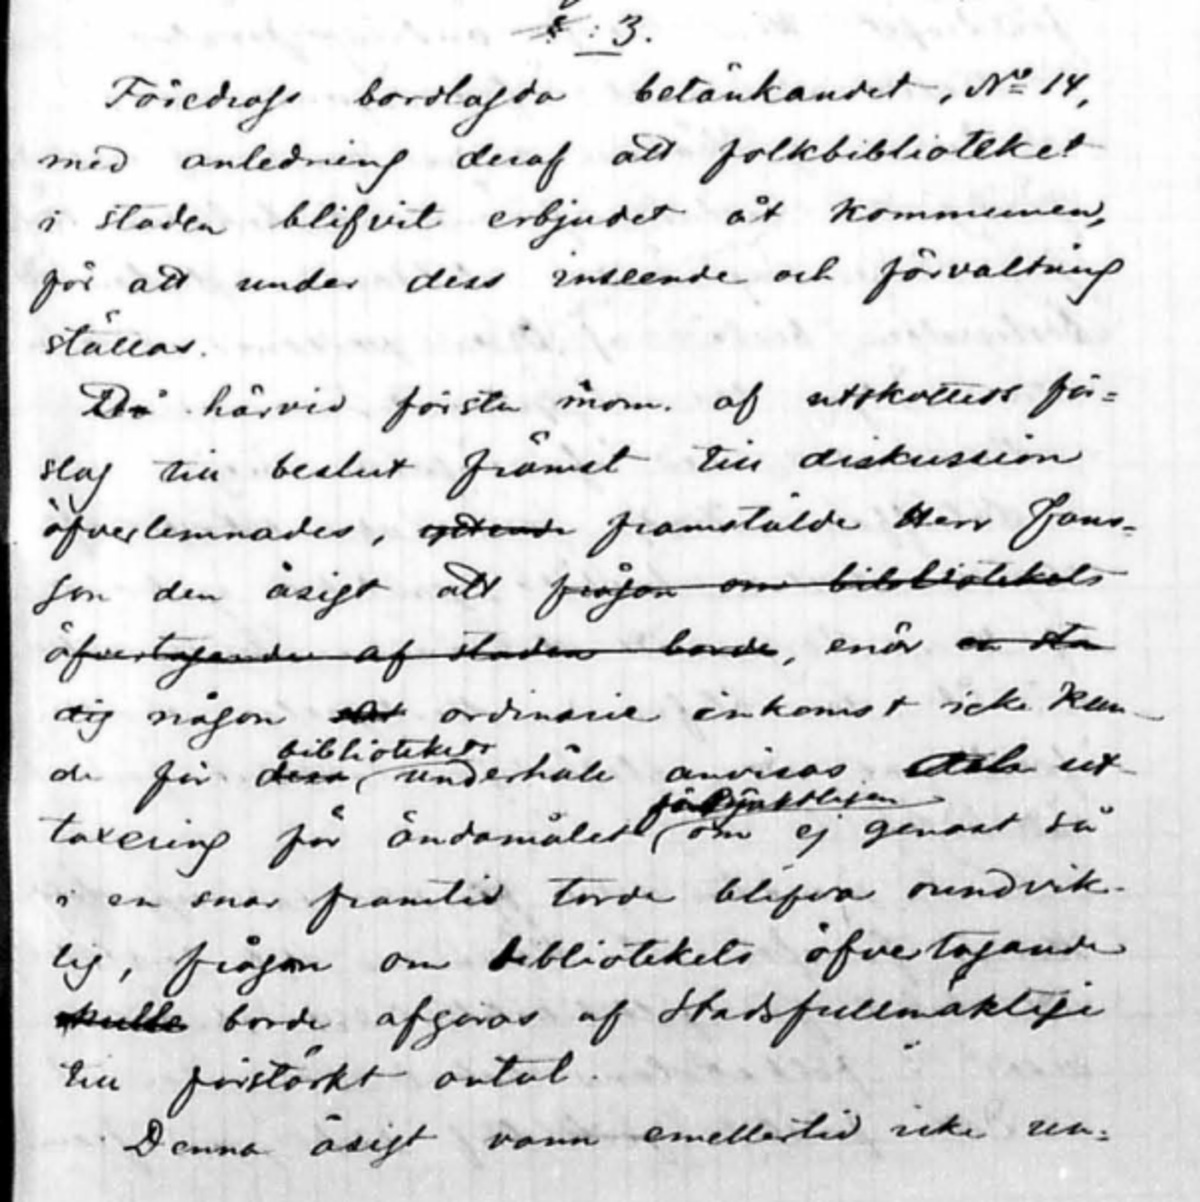 §: 3.
Föredrogs bordlagda betänkandet, No 14,
med anledning deraf att folkbiblioteket
i staden blifvit erbjudet åt kommunen,
för att under dess inseende och förvaltning
ställas.
Då härvid första mom. af utskottets för=
slag till beslut främst till diskussion
öfverlemnades, framstälde Herr Jans=
son den åsigt att frågan om bibliotekets
öfvertagande af staden borde, enär en stän
dig någon ordinarie inkomst icke kun-
bibliotekets
de för dess underhåll anvisas och ut-
taxering för ändamålet om ej genast så
i en snar framtid torde blifva oundvik-
lig, frågan om bibliotekets öfvertagande
skulle borde afgöras af Stadsfullmäktige
till förstärkt antal.
Denna åsigt vann emellertid icke un=